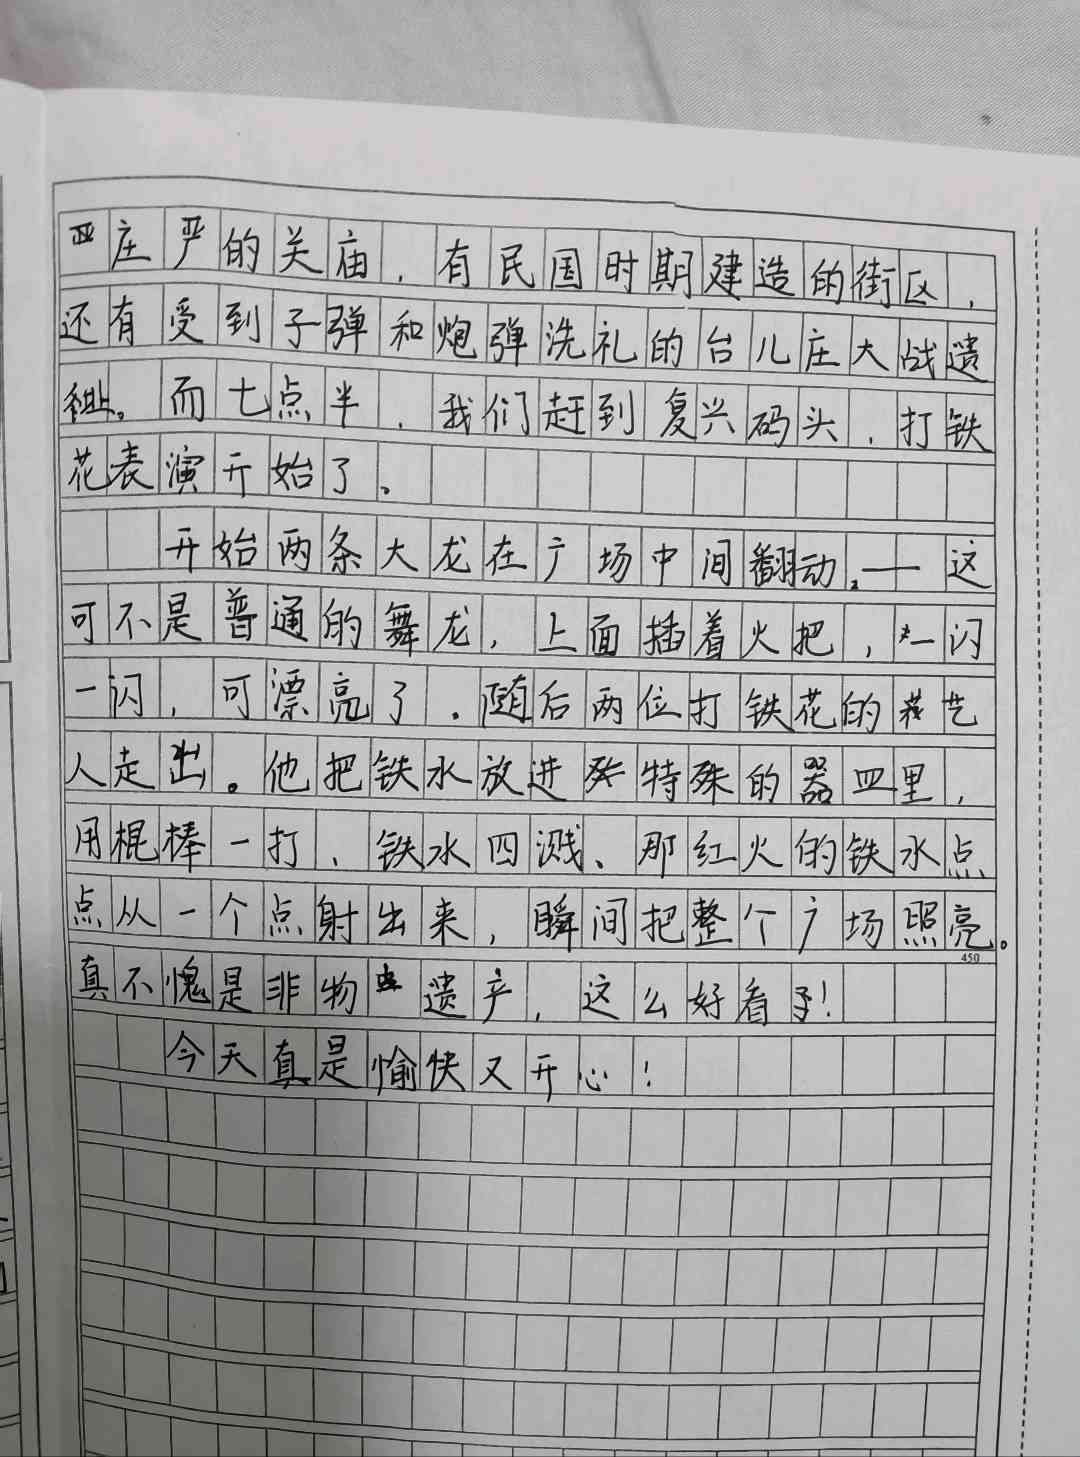 庄严的关庙，有民国时期建造的街区，
还有受到子弹和炮弹洗礼的台儿庄大战遗
。而七点半，我们赶到复兴码头，打铁
花表演开始了。
开始两条大龙在广场中间翻动。——这
可不是普通的舞龙，上面插着火把，一闪
一闪，可漂亮了。随后两位打铁花的艺
人走出。他把铁水放进特殊的器皿里，
用棍棒一打，铁水四溅、那红火的铁水点
点从一个点射出来，瞬间把整个广场照亮。
450
真不愧是非物遗产，这么好看！
今天真是愉快又开心！